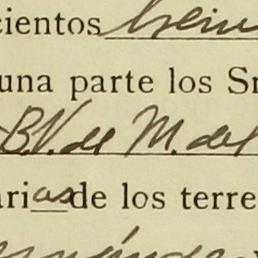 cientos
una parte los Sr
B.V. de M. del
arias de los terre